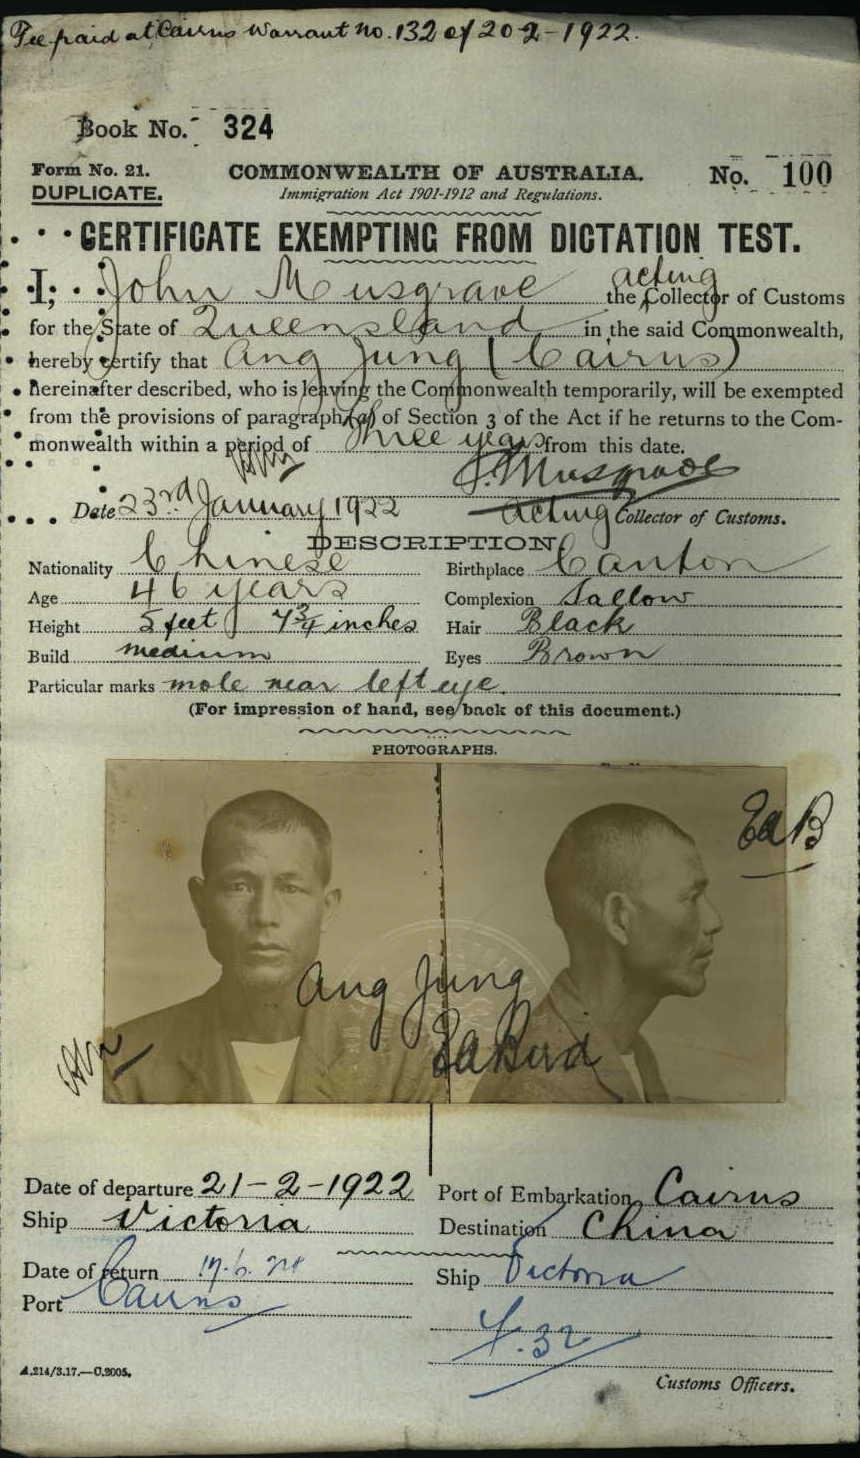 Fee paid at Cairns Warrant no. 132 of 20-2-1922.
Book No. 324
Form No. 21.
DUPLICATE.
COMMONWEALTH OF AUSTRALIA.
Immigration Act 1901-1912 and Regulations.
No. 100
CERTIFICATE EXEMPTING FROM DICTATION TEST.
I, John Musgrave the acting Collector of Customs
for the State of Queensland in the said Commonwealth,
hereby certify that Ang Jung (Cairns)
hereinafter described, who is leaving the Commonwealth temporarily, will be exempted
from the provisions of paragraph (a) of Section 3 of the Act if he returns to the Com-
monwealth within a period of Three years from this date.
J. Musgrave
Date 23rd January 1922
acting Collector of Customs.
DESCRIPTION
Nationality Chinese Birthplace Canton
Age 46 years Complexion Sallow
Height 5 feet 7¾ inches Hair Black
Build medium Eyes Brown
Particular marks mole near left eye.
(For impression of hand, see back of this document.)
PHOTOGRAPHS.
Ed B
Ang Jung
Ed Bird
Date of departure 21-2-1922 Port of Embarkation Cairns
Ship Victoria Destination China
Date of return Ship Victoria
Port Cairns
A.214/3.17.—C.2005.
Customs Officers.